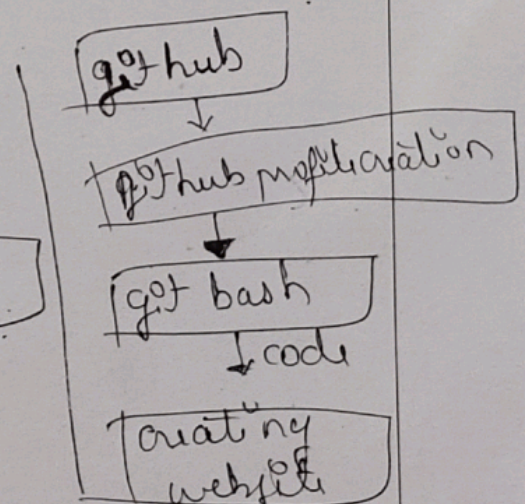 github
github profile creation
git bash
code
creating
website